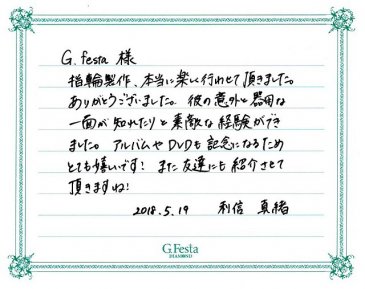 G.festa 様
指輪製作、本当に楽しく行わせて頂きました。
ありがとうございました。彼の意外と器用な
一面が知れたりと素敵な経験ができ
ました。アルバムやDVDも記念になるため
とても嬉しいです！また友達にも紹介させて
頂きますね！
2018.5.19 利信 真緒
G.Festa
DIAMOND